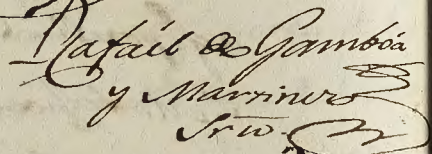 Rafaél de Gamboa
y Martinero
Srio.